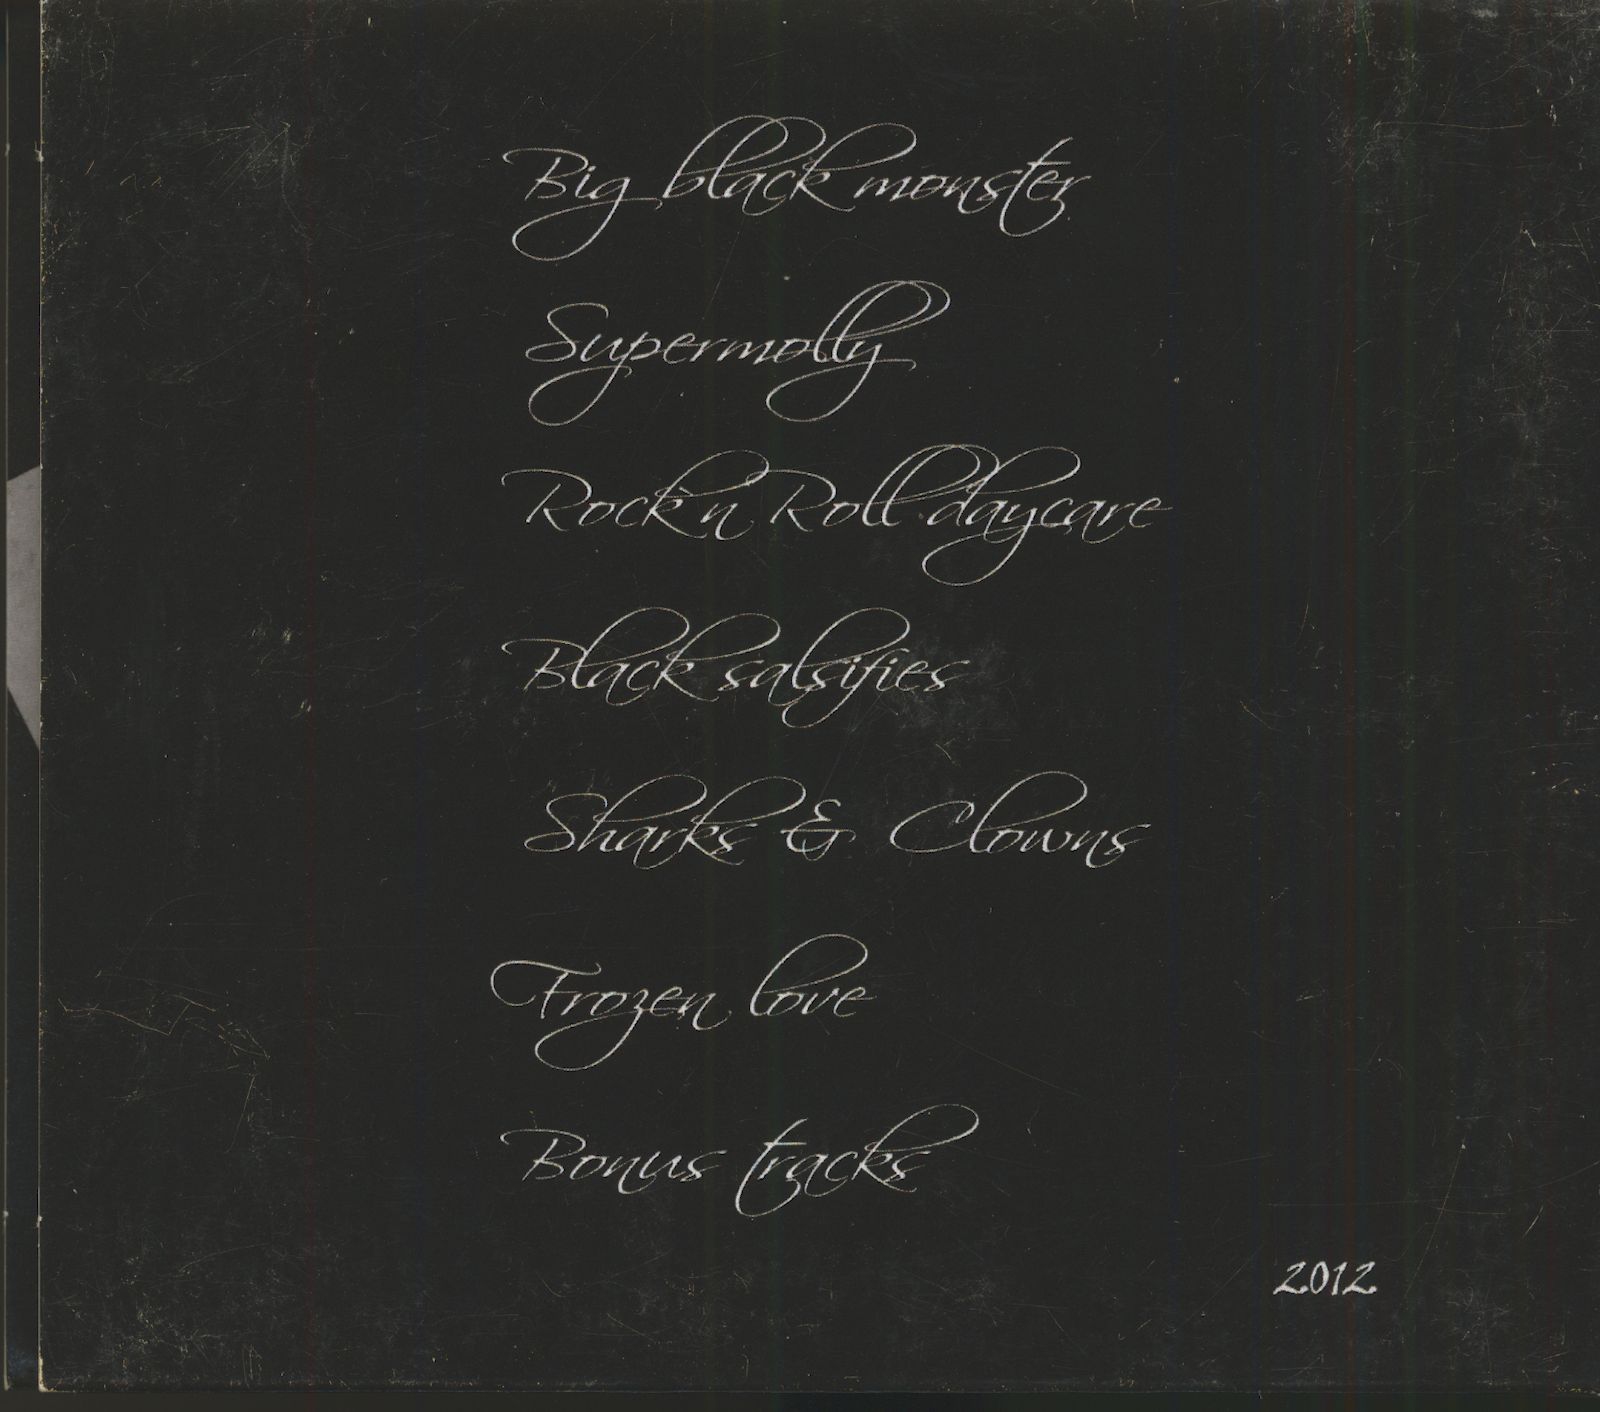 Big black monster
Supermolly
Rock'n Roll daycare
Black salsifies
Sharks & Clowns
Frozen love
Bonus tracks
2012